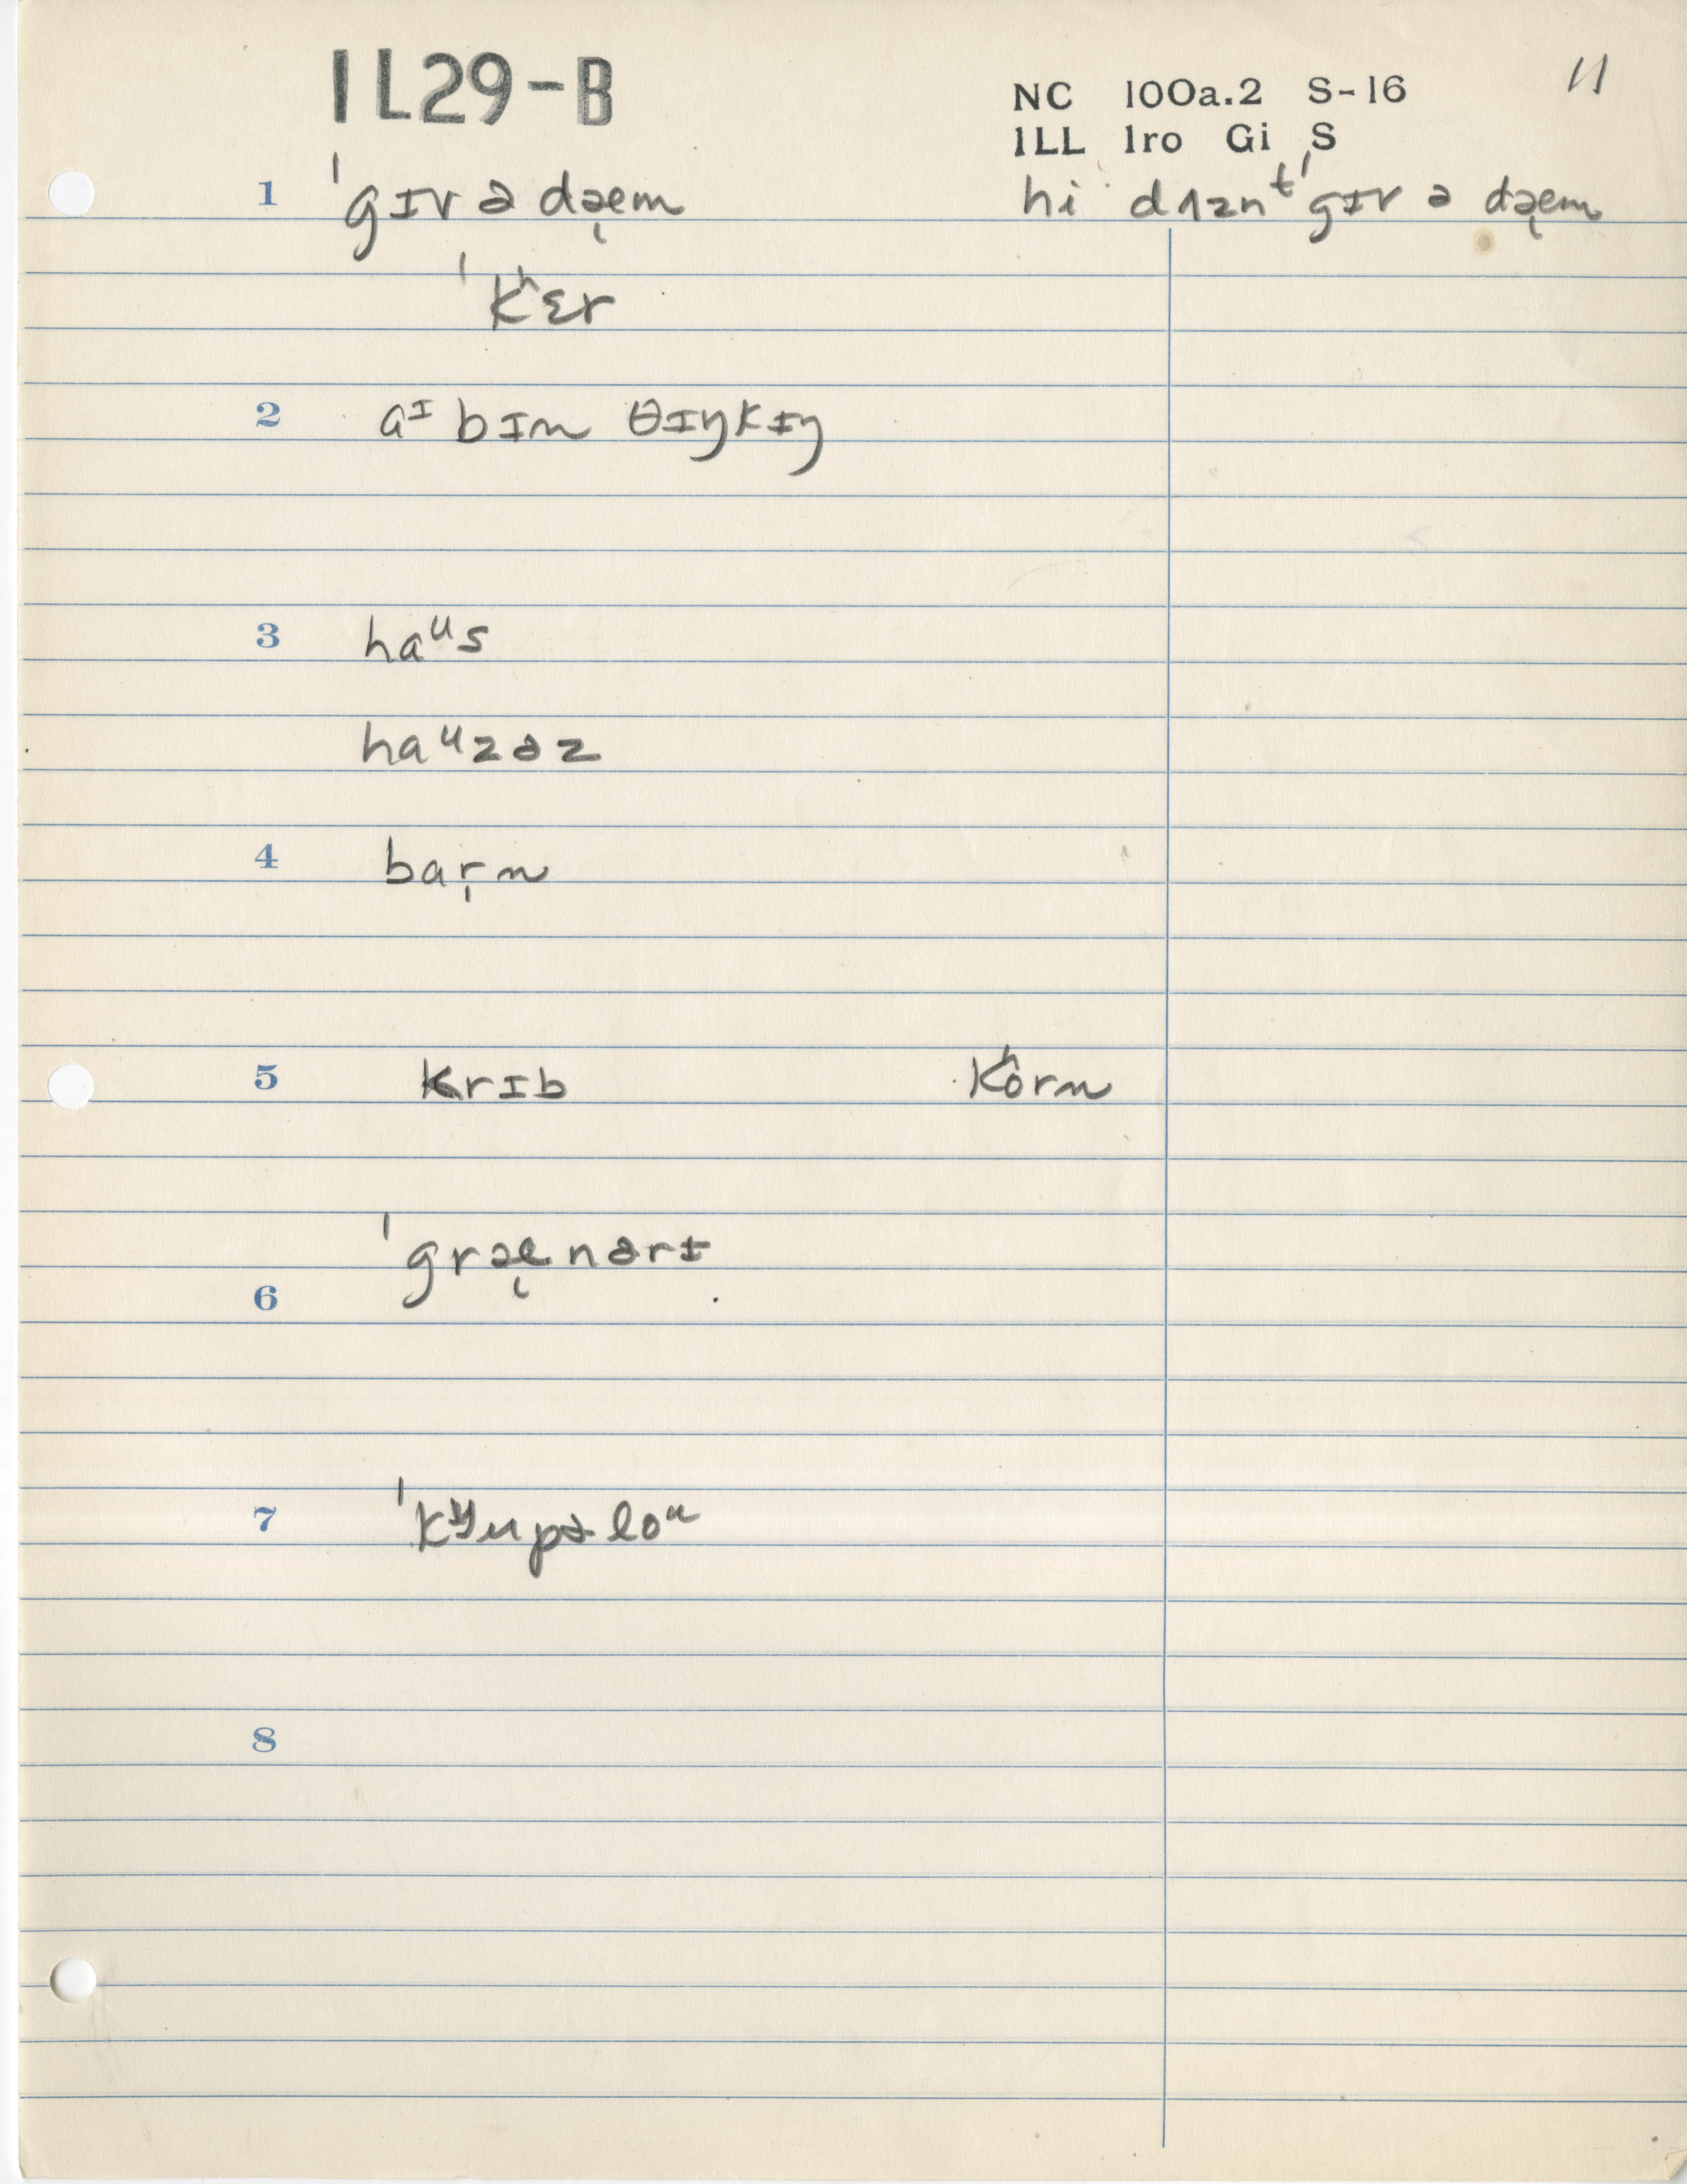 IL29-B
NC 100a.2 S-16 11
ILL Iro Gi S
1 ˈgɪv ə dæ̨m hi dʌznᵗ ˈgɪv ə dæ̨m
ˈkʰɛr
2 aᶦ bɪn θɪŋkɪŋ
3 haᵘs
haᵘzəz
4 baṛn
5 krɪb kʰorn
ˈgræ̨nərɪ
6
7 ˈkʸupəloᵘ
8